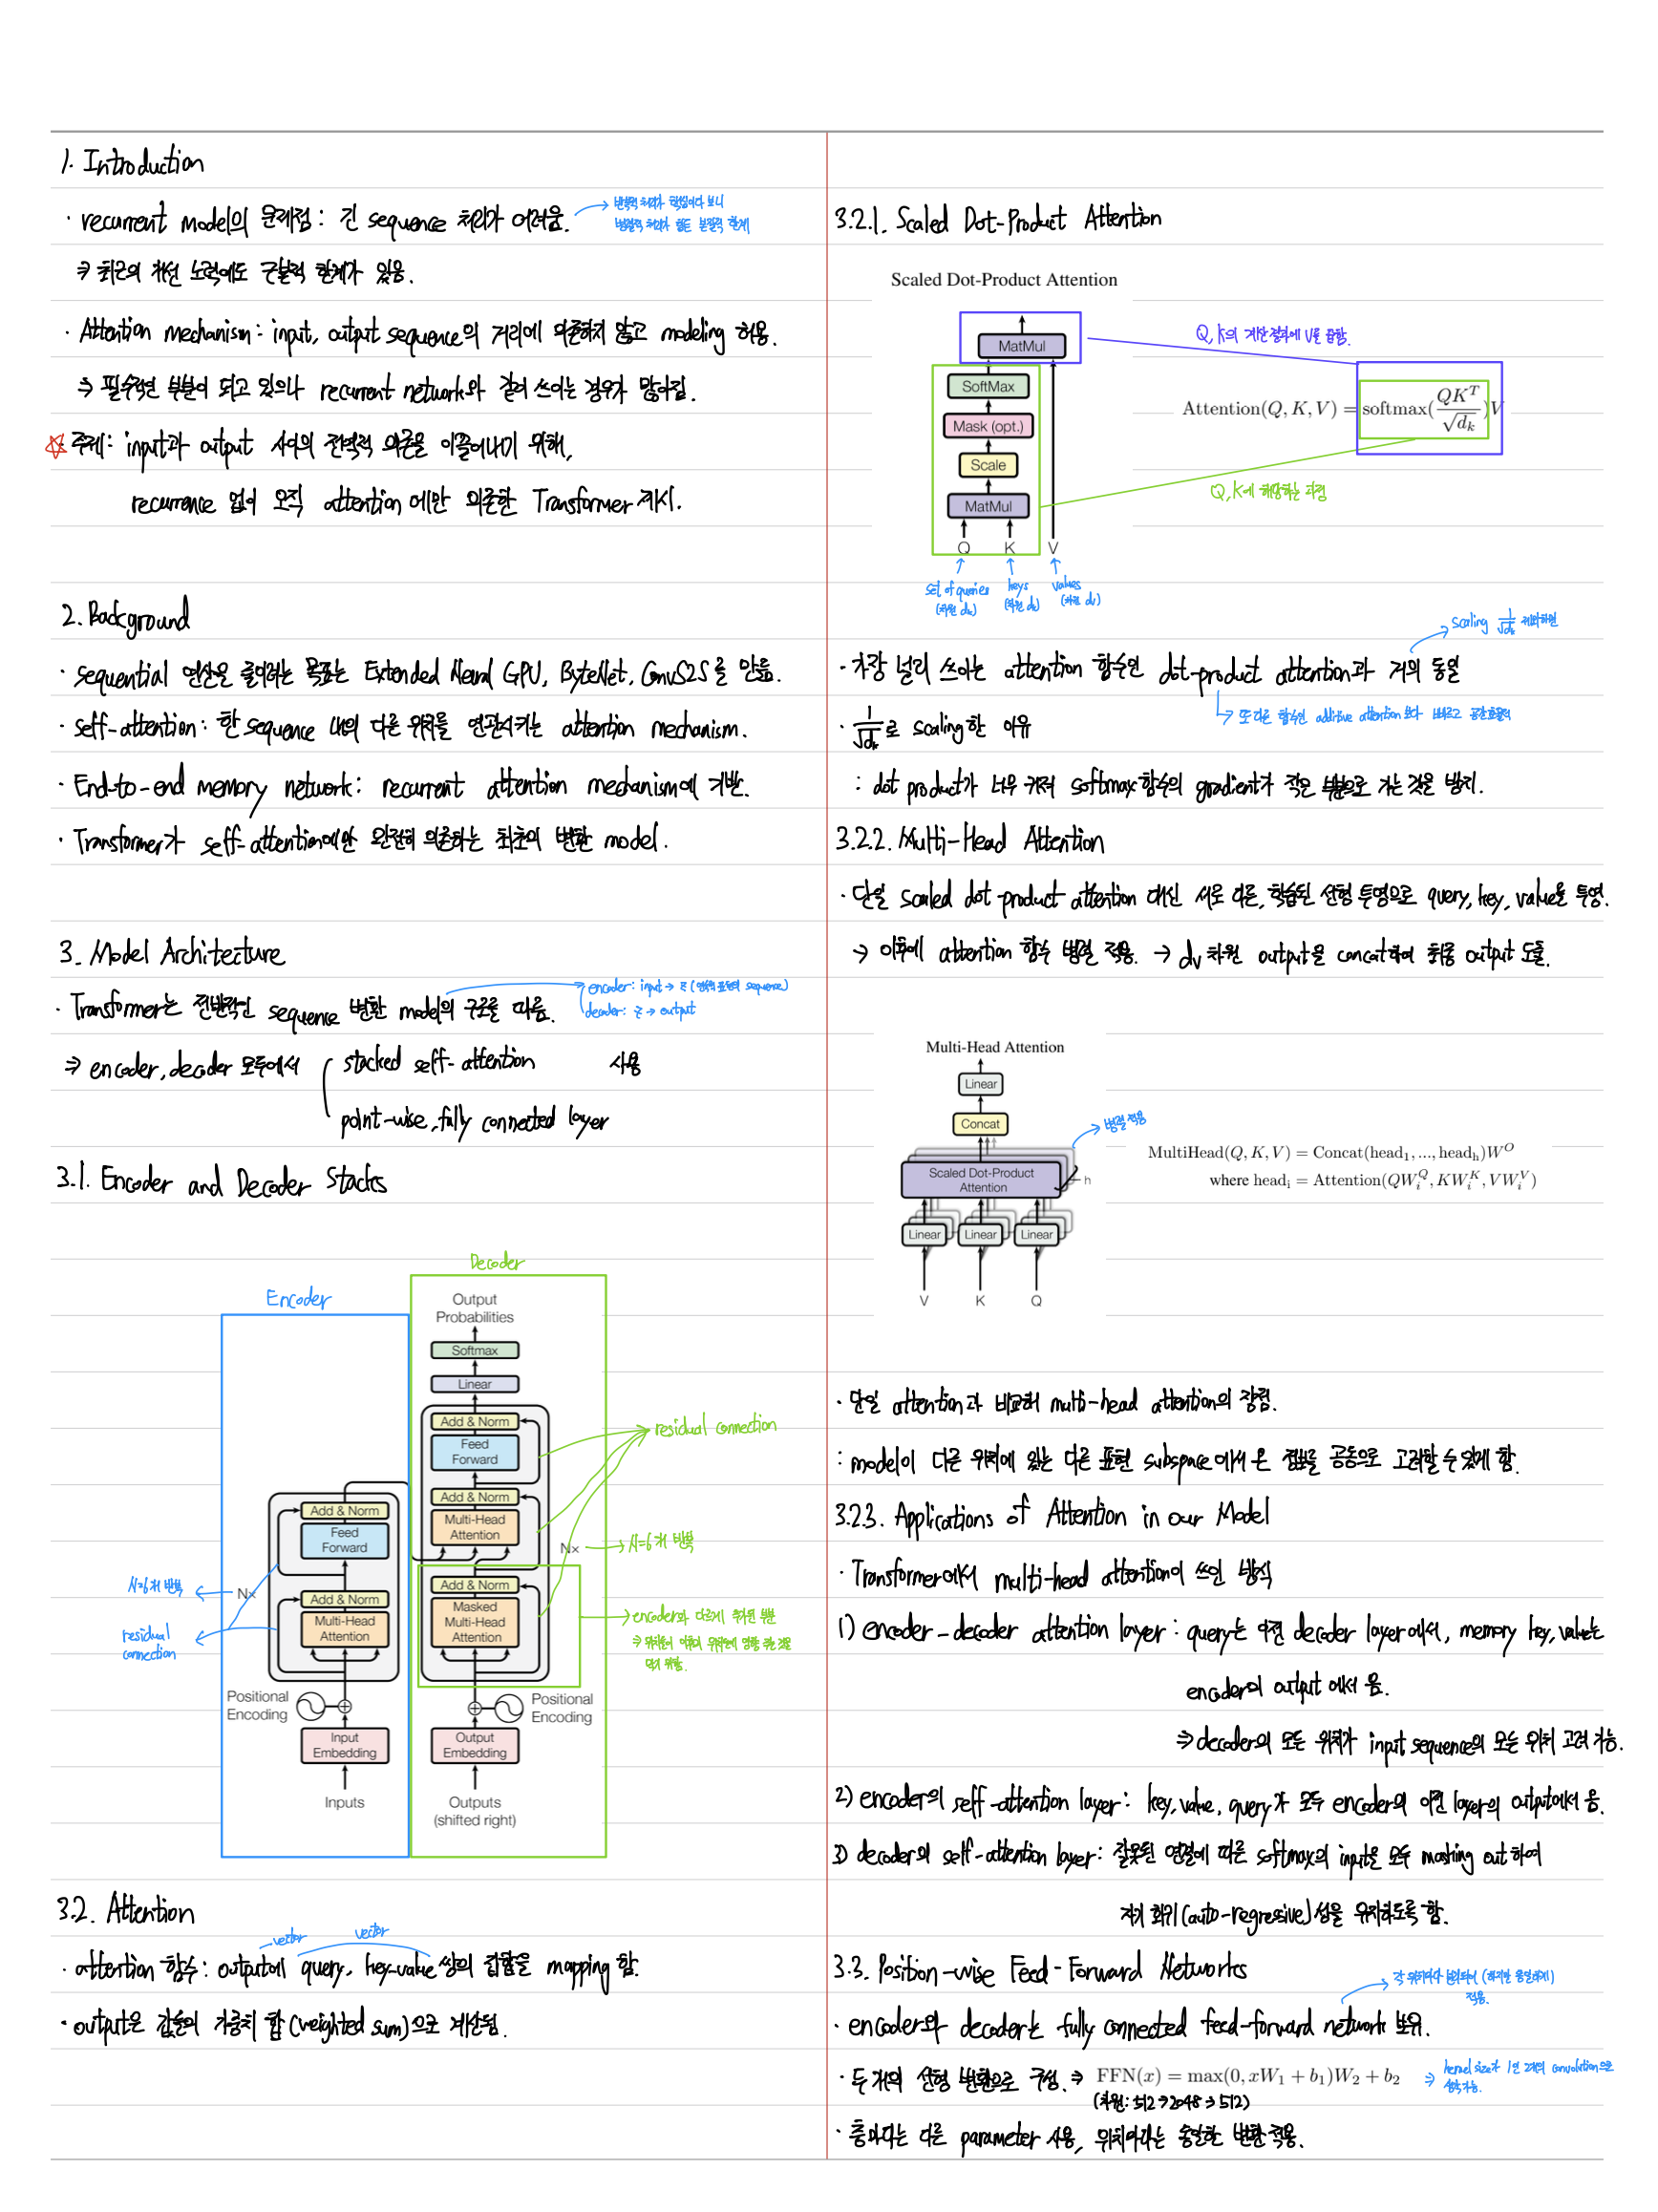 1. Introduction
· recurrent model의 문제점 : 긴 sequence 처리가 어려움.
반복적 처리가 핵심이다 보니
병렬적 처리가 힘든 본질적 한계
⇒ 최근의 개선 노력에도 근본적 한계가 있음.
· Attention mechanism : input, output sequence의 거리에 의존하지 않고 modeling 허용.
⇒ 필수적인 부분이 되고 있으나 recurrent network와 같이 쓰이는 경우가 많아짐.
☆· 주제 : input과 output 사이의 전역적 의존을 이끌어내기 위해,
recurrence 없이 오직 attention에만 의존한 Transformer 제시.
2. Background
· sequential 연산을 줄이려는 목표는 Extended Neural GPU, ByteNet, ConvS2S를 만듦.
· self-attention : 한 sequence 내의 다른 위치를 연관시키는 attention mechanism.
· End-to-end memory network : recurrent attention mechanism에 기반.
· Transformer가 self-attention에만 완전히 의존하는 최초의 변환 model.
3. Model Architecture
· Transformer는 전반적인 sequence 변환 model의 구조를 따름.
encoder : input → z (연속적 표현의 sequence)
decoder : z → output
⇒ encoder, decoder 모두에서 stacked self-attention 사용
point-wise, fully connected layer
3.1. Encoder and Decoder Stacks
Decoder
Encoder
Output
Probabilities
Softmax
Linear
Add & Norm
Feed
Forward
residual connection
Add & Norm
Multi-Head
Attention
Add & Norm
Feed
Forward
Nx → N=6개 반복
N=6개 반복 ← Nx
Add & Norm
Multi-Head
Attention
residual
connection
Add & Norm
Masked
Multi-Head
Attention
encoder와 다르게 추가된 부분
⇒ 위치들이 이후의 위치들에 영향 받는 것을
막기 위함.
Positional
Encoding
Positional
Encoding
Input
Embedding
Output
Embedding
Inputs
Outputs
(shifted right)
3.2. Attention
vector vector
· attention 함수 : output에 query, key-value 쌍의 집합을 mapping 함.
· output은 값들의 가중치 합(weighted sum)으로 계산됨.
3.2.1. Scaled Dot-Product Attention
Scaled Dot-Product Attention
MatMul
SoftMax
Mask (opt.)
Scale
MatMul
Q K V
Q, K의 계산결과에 V를 곱함.
Attention(Q, K, V) = softmax(QK^T/√d_k)V
Q, K에 해당하는 과정
set of queries (차원 dk)
keys (차원 dk)
values (차원 dv)
scaling 1/√dk 제외하면
· 가장 널리 쓰이는 attention 함수인 dot-product attention과 거의 동일
↳ 또다른 함수인 additive attention보다 빠르고 공간효율적
· 1/√dk로 scaling한 이유
: dot product가 너무 커져 softmax 함수의 gradient가 작은 부분으로 가는 것을 방지.
3.2.2. Multi-Head Attention
· 단일 scaled dot-product attention 대신 서로 다른, 학습된 선형 투영으로 query, key, value를 투영.
→ 이후에 attention 함수 병렬 적용. → dv 차원 output을 concat하여 최종 output 도출.
Multi-Head Attention
Linear
Concat
병렬 적용
Scaled Dot-Product
Attention
h
Linear Linear Linear
V K Q
MultiHead(Q, K, V) = Concat(head_1, ..., head_h)W^O
where head_i = Attention(QW_i^Q, KW_i^K, VW_i^V)
· 단일 attention과 비교해 multi-head attention의 장점.
: model이 다른 위치에 있는 다른 표현 subspace에서 온 정보를 공동으로 고려할 수 있게 함.
3.2.3. Applications of Attention in our Model
· Transformer에서 multi-head attention이 쓰인 방식
1) encoder-decoder attention layer : query는 이전 decoder layer에서, memory key, value는
encoder의 output에서 옴.
⇒ decoder의 모든 위치가 input sequence의 모든 위치 고려 가능.
2) encoder의 self-attention layer : key, value, query가 모두 encoder의 이전 layer의 output에서 옴.
3) decoder의 self-attention layer : 잘못된 연결에 따른 softmax의 input을 모두 masking out 하여
자기 회귀(auto-regressive)성을 유지하도록 함.
3.3. Position-wise Feed-Forward Networks
각 위치마다 분리되어 (하지만 동일하게)
적용.
· encoder와 decoder는 fully connected feed-forward network 보유.
· 두 개의 선형 변환으로 구성. ⇒ FFN(x) = max(0, xW_1 + b_1)W_2 + b_2
⇒ kernel size가 1인 2개의 convolution으로
생각 가능.
(차원 : 512→2048→512)
· 층마다는 다른 parameter 사용, 위치마다는 동일한 변환 적용.